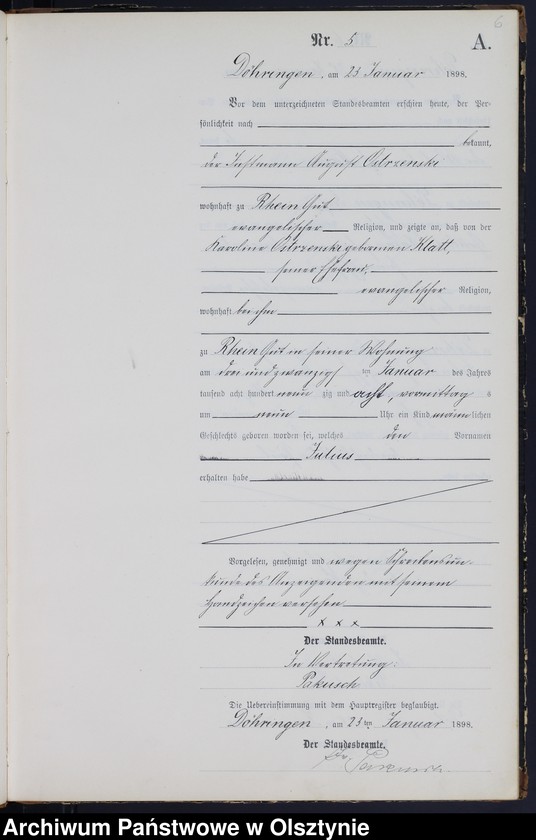 6
Nr. 5
A.
Döhringen, am 23 Januar 1898.
Vor dem unterzeichneten Standesbeamten erschien heute, der Per-
sönlichkeit nach
bekannt,
der Instmann August Ostrzenski
wohnhaft zu Rhein Gut
evangelischer Religion, und zeigte an, daß von der
Karoline Ostrzenski geborenen Klatt,
seiner Ehefrau,
evangelischer Religion,
wohnhaft bei ihm
zu Rhein Gut in seiner Wohnung
am drei und zwanzigsten Januar des Jahres
tausend acht hundert neunzig und acht, vormittags
um neun Uhr ein Kind männlichen
Geschlechts geboren worden sei, welches den Vornamen
Julius
erhalten habe
Vorgelesen, genehmigt und wegen Schreibensun-
kunde des Anzeigenden mit seinem
Handzeichen versehen
x x x
Der Standesbeamte.
In Vertretung:
Pakusch
Die Uebereinstimmung mit dem Hauptregister beglaubigt.
Döhringen, am 23ten Januar 1898.
Der Standesbeamte.
Archiwum Państwowe w Olsztynie